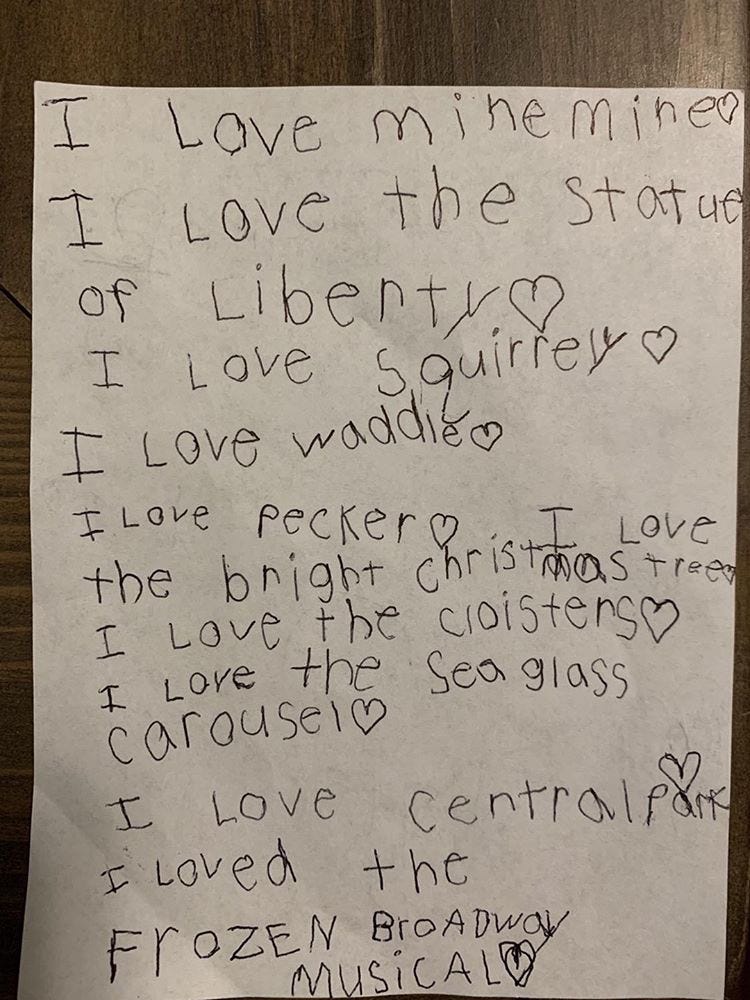 I Love minemine♡
I Love the Statue
of Liberty♡
I Love Squirrely♡
I Love waddle♡
I Love Pecker♡ I Love
the bright christmas tree♡
I Love the cloisters♡
I Love the Sea glass
carousel♡
I Love central Park♡
I Loved the
FrOZEN BroADWay
MUSiCAL♡